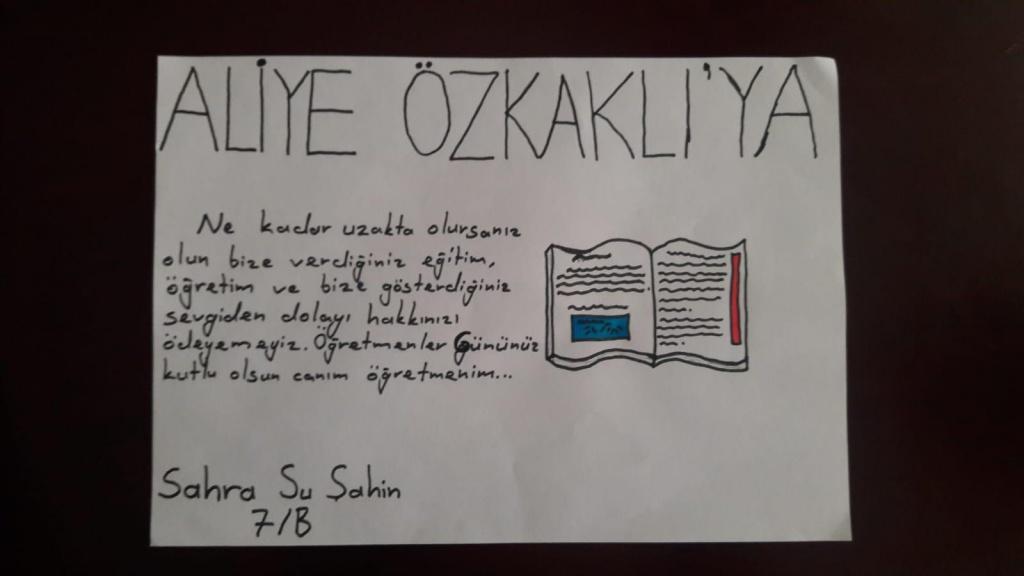 ALİYE ÖZKAKLI'YA
Ne kadar uzakta olursanız
olun bize verdiğiniz eğitim,
öğretim ve bize gösterdiğiniz
sevgiden dolayı hakkınızı
ödeyemeyiz. Öğretmenler Gününüz
kutlu olsun canım öğretmenim...
Sahra Su Şahin
7/B